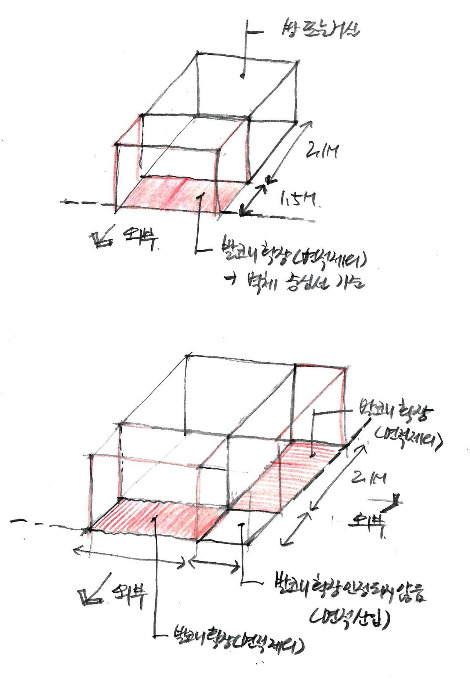 방 또는 거실
2.1M
1.5M.
외부
발코니 확장(면적제외)
→ 벽체 중심선 기준
발코니 확장
(면적제외)
2.1M
외부
발코니 확장 인정되지 않음
(면적산입)
외부
발코니 확장(면적제외)